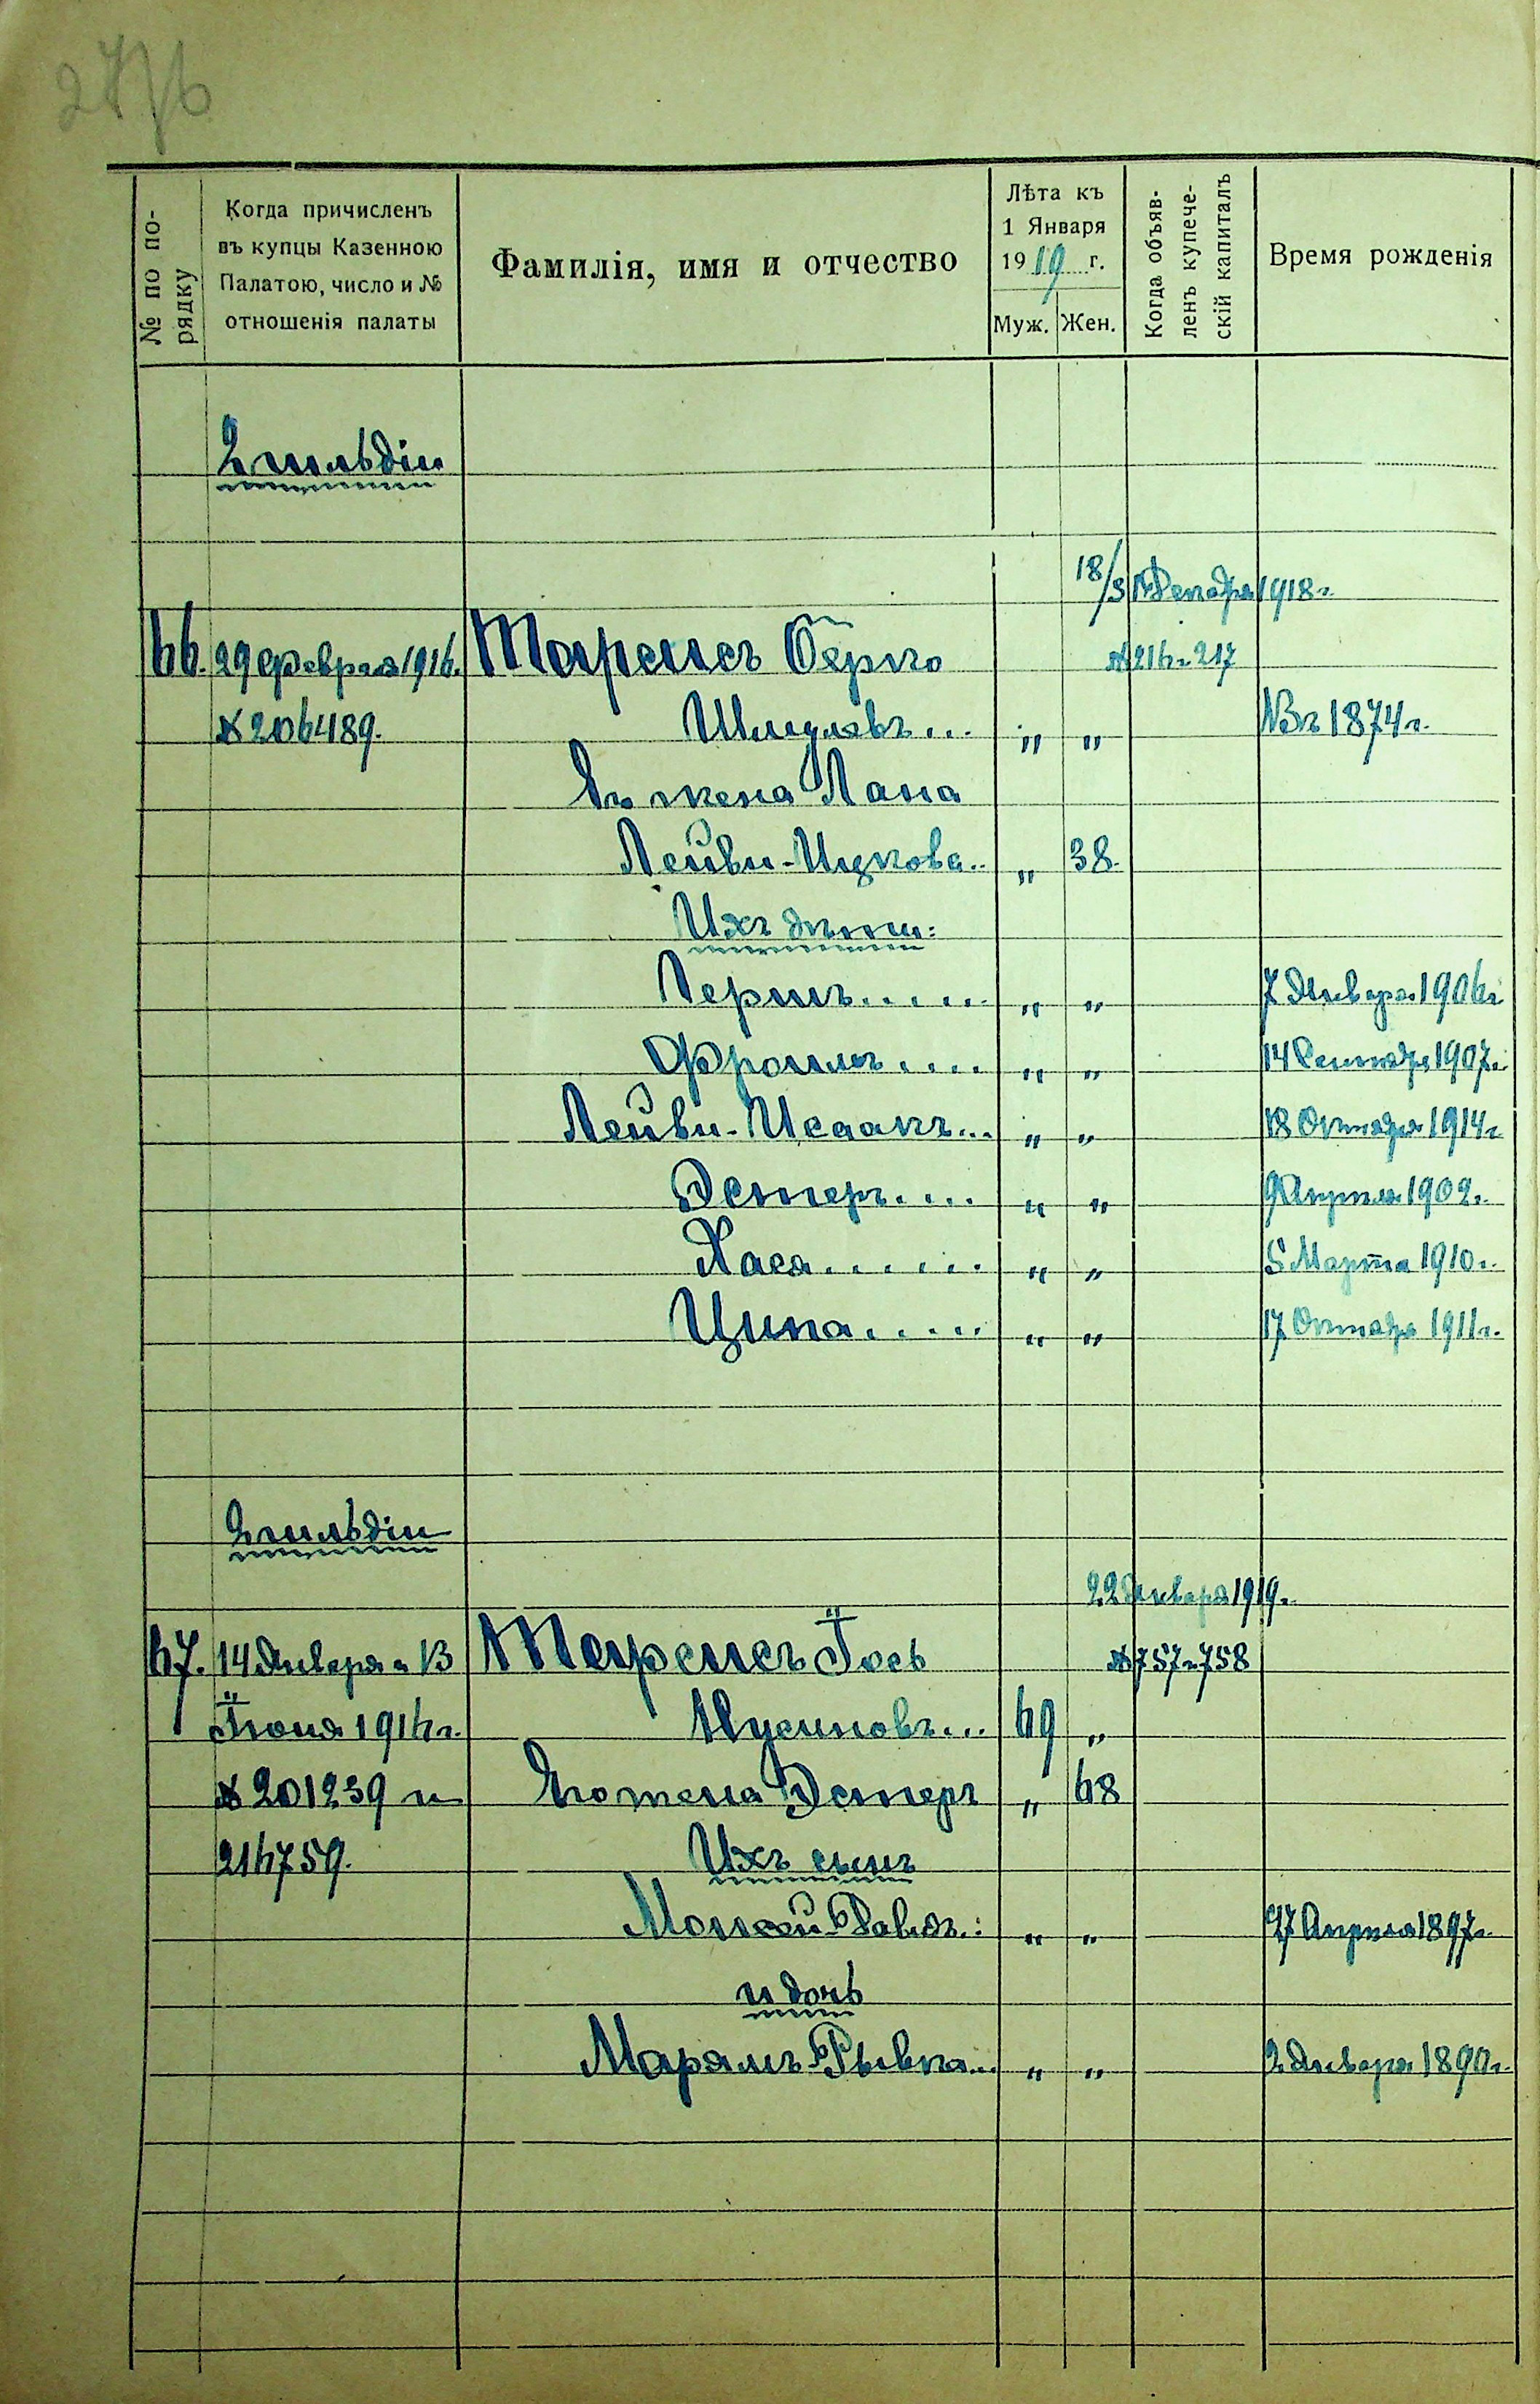 276
№ по по-
рядку
Когда причисленъ
въ купцы Казенною
Палатою, число и №
отношенія палаты
Фамилія, имя и отчество
Лѣта къ
1 Января
1919 г.
Муж. Жен.
Когда объяв-
ленъ купече-
скій капиталъ
Время рожденія
2 гильдіи
18/31 Декабря 1918 г.
66. 29 февраля 1916 г. Маренсъ Берко № 216 и 217
№ 206489. Шмулевъ... „ „ Въ 1874 г.
Его жена Хана
Лейви-Ицкова.. „ 38.
Ихъ дѣти:
Гершъ..... „ „ 7 Января 1906 г.
Фроимъ.... „ „ 14 Сентября 1907 г.
Лейви-Исаакъ... „ „ 18 Октября 1914 г.
Эстеръ.... „ „ 9 Апрѣля 1902 г.
Хася...... „ „ 5 Марта 1910 г.
Ципа..... „ „ 17 Октября 1911 г.
2 гильдіи
22 Января 1919 г.
67. 14 Января и 13 Маренсъ Іось № 757 и 758
Іюня 1916 г. Нусиновъ... 69 „
№ 201239 и Его жена Эстеръ „ 68
216759. Ихъ сынъ
Мошей-Давидъ.. „ „ 27 Апрѣля 1897 г.
и дочь
Марямъ-Рывка... „ „ 2 Января 1890 г.